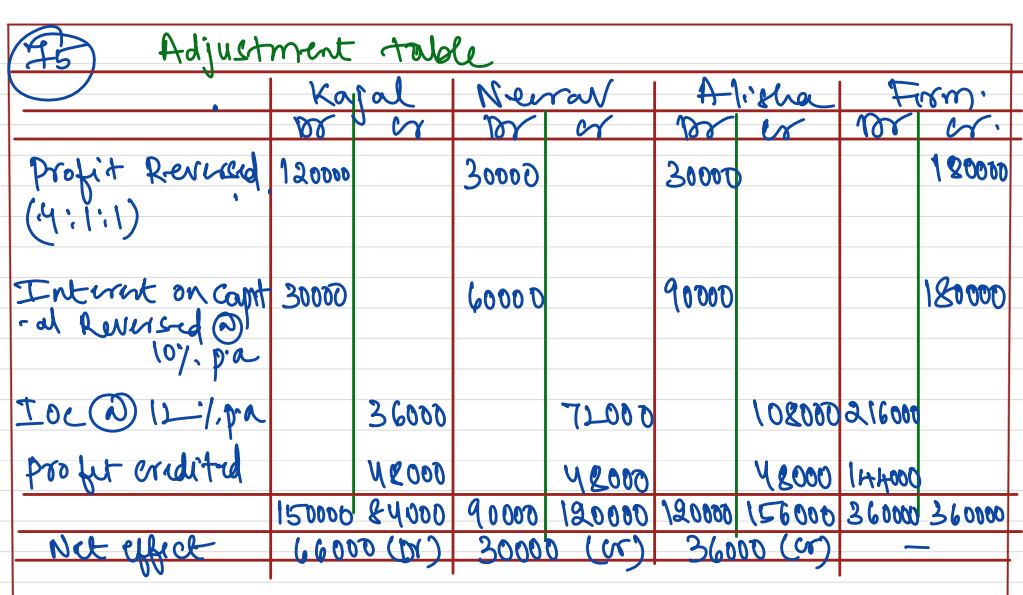 75 Adjustment table
Kajal Neerav Alisha Firm.
Dr Cr Dr Cr Dr Cr Dr Cr.
Profit Reversed 120000 30000 30000 180000
(4:1:1)
Interest on Capit 30000 60000 90000 180000
-al Reversed @
10% p.a
IOC @ 12% p.a 36000 72000 108000 216000
Profit credited 48000 48000 48000 144000
150000 84000 90000 120000 120000 156000 360000 360000
Net effect 66000 (Dr) 30000 (Cr) 36000 (Cr) —